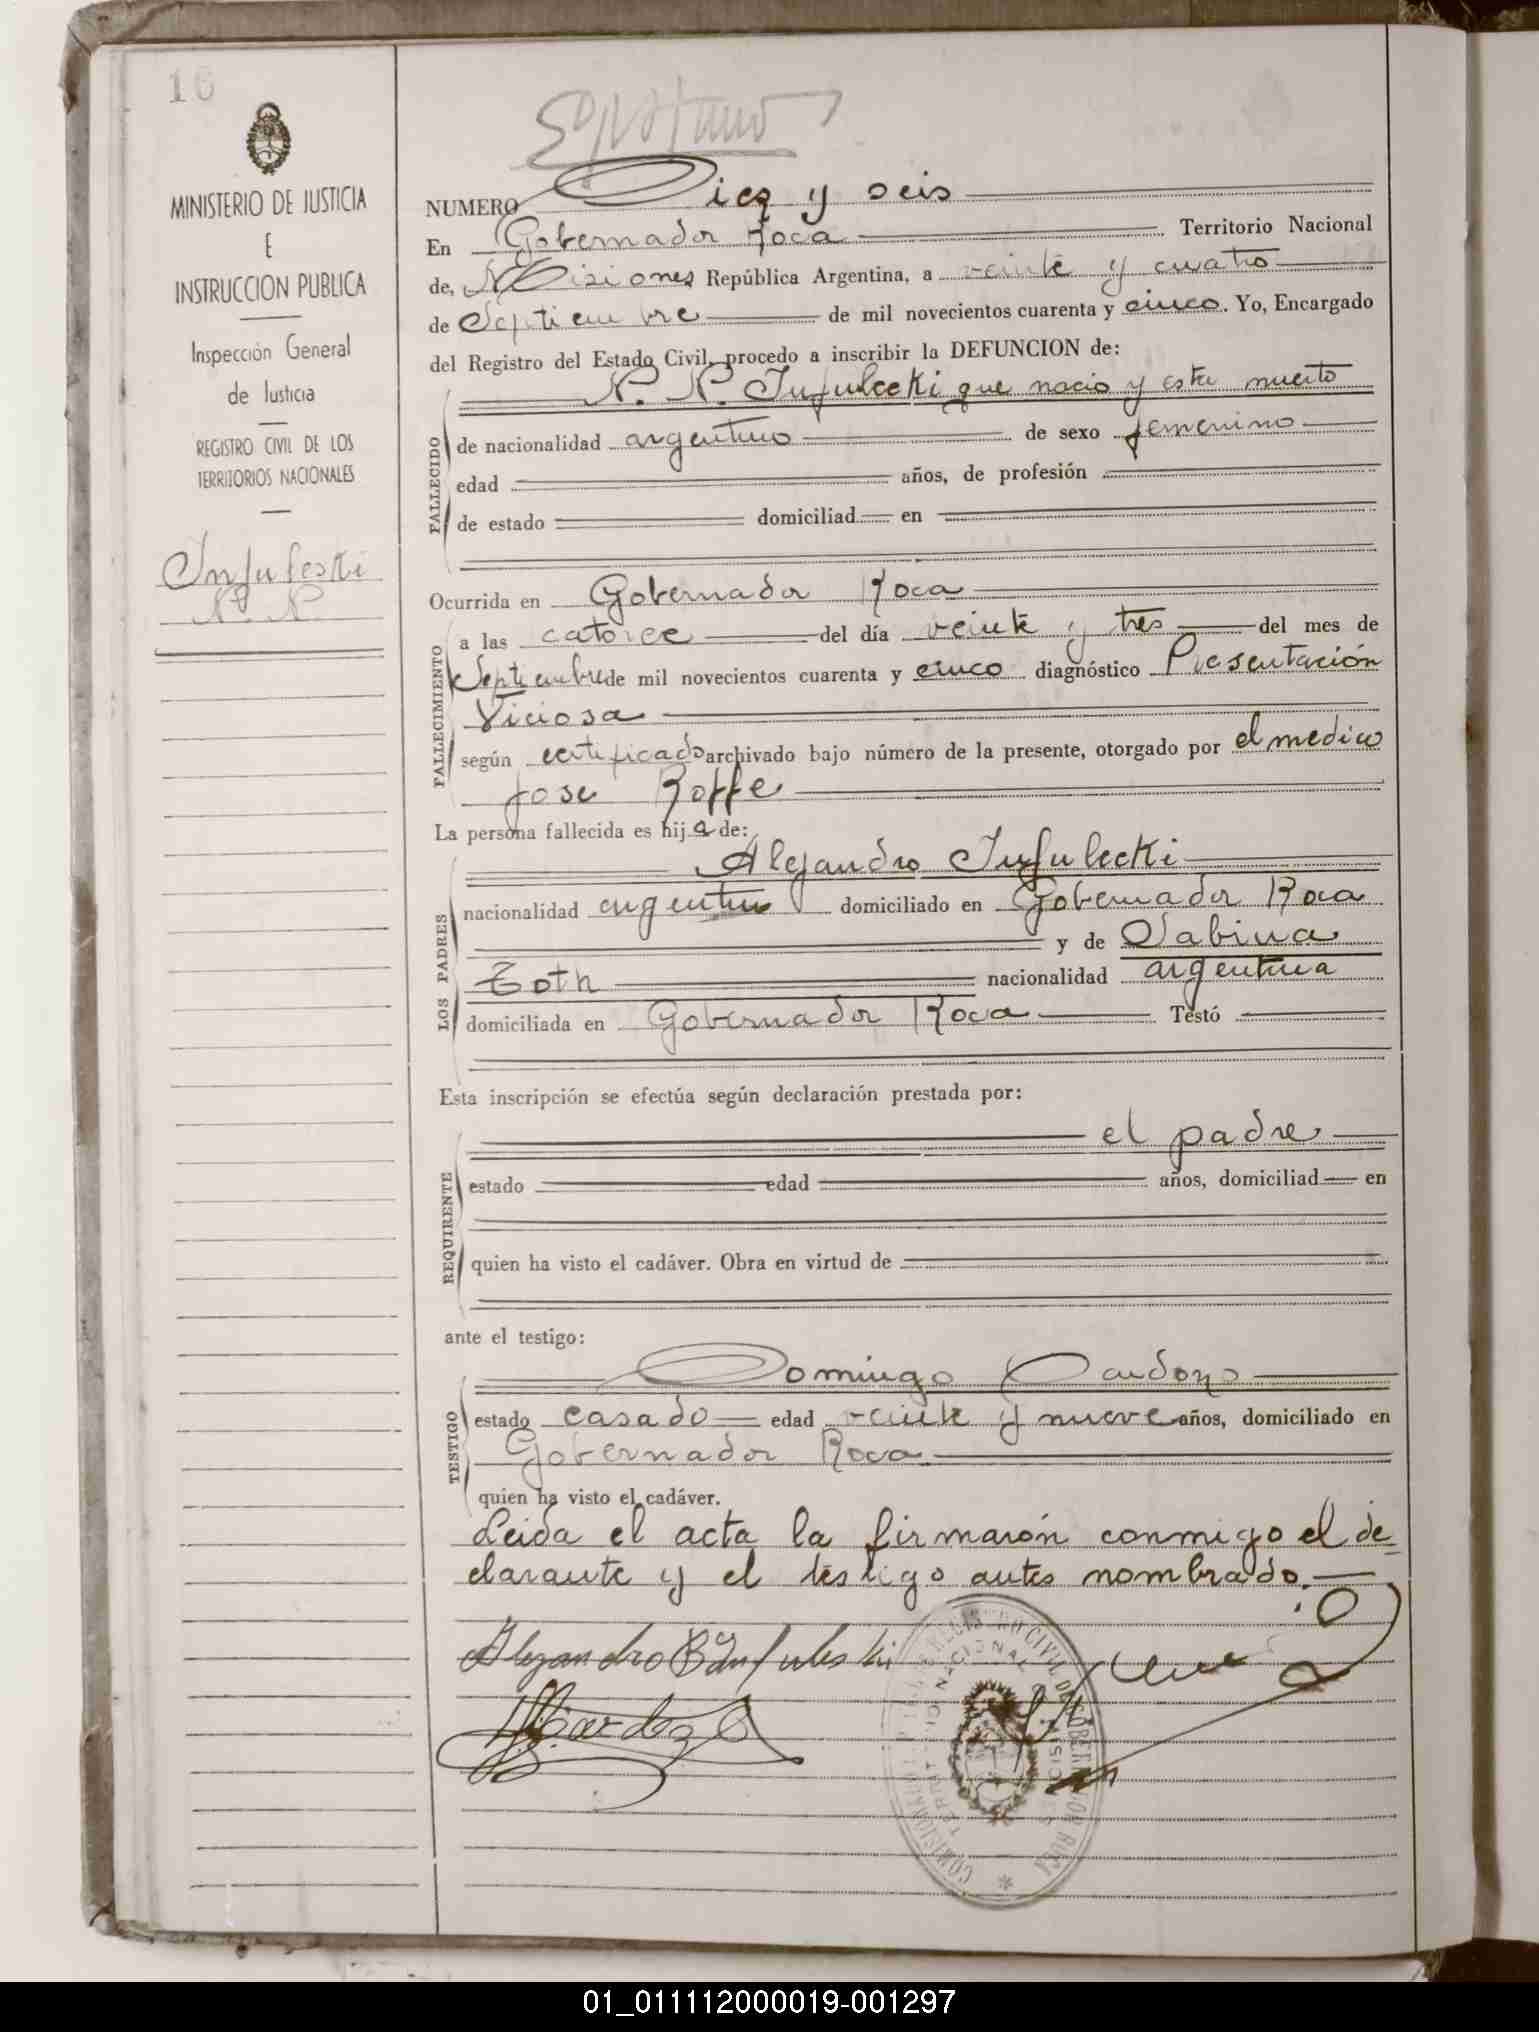 16
MINISTERIO DE JUSTICIA
E
INSTRUCCION PUBLICA
Inspección General
de Justicia
REGISTRO CIVIL DE LOS
TERRITORIOS NACIONALES
N. N.
NUMERO Diez y seis
En Gobernador Roca Territorio Nacional
de, Misiones República Argentina, a veinte y cuatro
de Septiembre de mil novecientos cuarenta y cinco. Yo, Encargado
del Registro del Estado Civil, procedo a inscribir la DEFUNCION de:
N. N. Infulecki que nacio y esta muerto
FALLECIDO
de nacionalidad argentino de sexo femenino
edad años, de profesión
de estado domiciliad en
Ocurrida en Gobernador Roca
FALLECIMIENTO
a las catorce del día veinte y tres del mes de
Septiembre de mil novecientos cuarenta y cinco diagnóstico Presentación
Viciosa
según certificado archivado bajo número de la presente, otorgado por el medico
Jose Roffe
La persona fallecida es hija de:
LOS PADRES
Alejandro Infulecki
nacionalidad argentino domiciliado en Gobernador Roca
y de Sabina
Toth nacionalidad argentina
domiciliada en Gobernador Roca Testó
Esta inscripción se efectúa según declaración prestada por:
REQUIRENTE
el padre
estado edad años, domiciliad en
quien ha visto el cadáver. Obra en virtud de
ante el testigo:
TESTIGO
Domingo Cardozo
estado casado edad veinte y nueve años, domiciliado en
Gobernador Roca
quien ha visto el cadáver.
Leida el acta la firmarón conmigo el de-
clarante y el testigo antes nombrado.
Alejandro
01_011112000019-001297